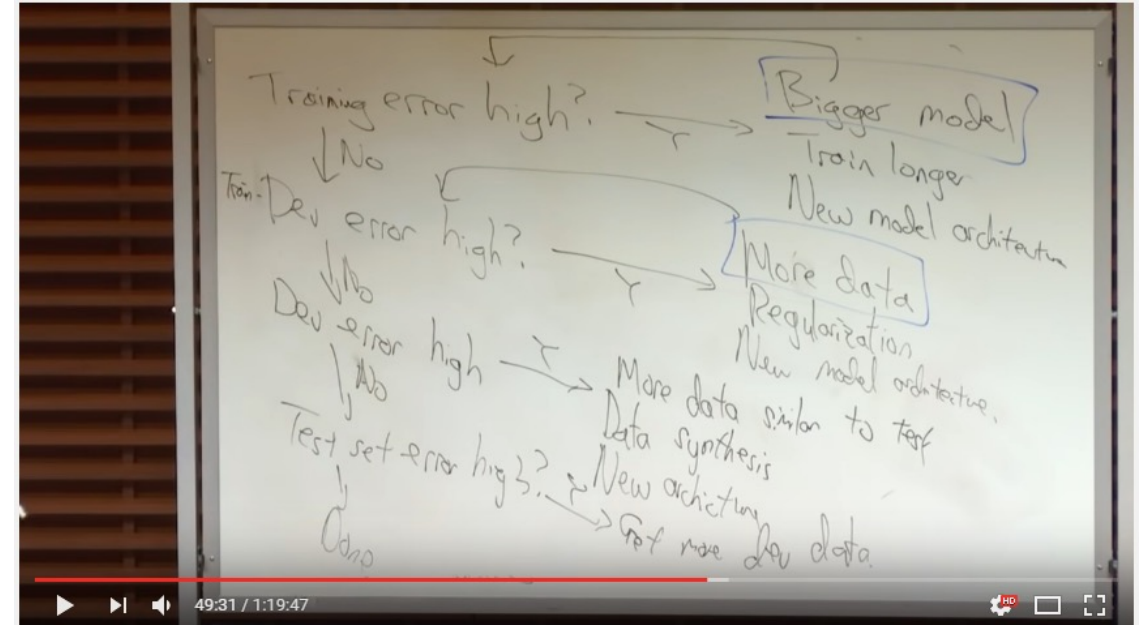 Training error high?
Y
Bigger model
Train longer
New model architecture
No
Train-Dev error high?
Y
More data
Regularization
New model architecture.
No
Dev error high
Y
More data similar to test
Data synthesis
New archicture
No
Test set error high?
Y
Get more dev data.
Done
49:31 / 1:19:47
HD